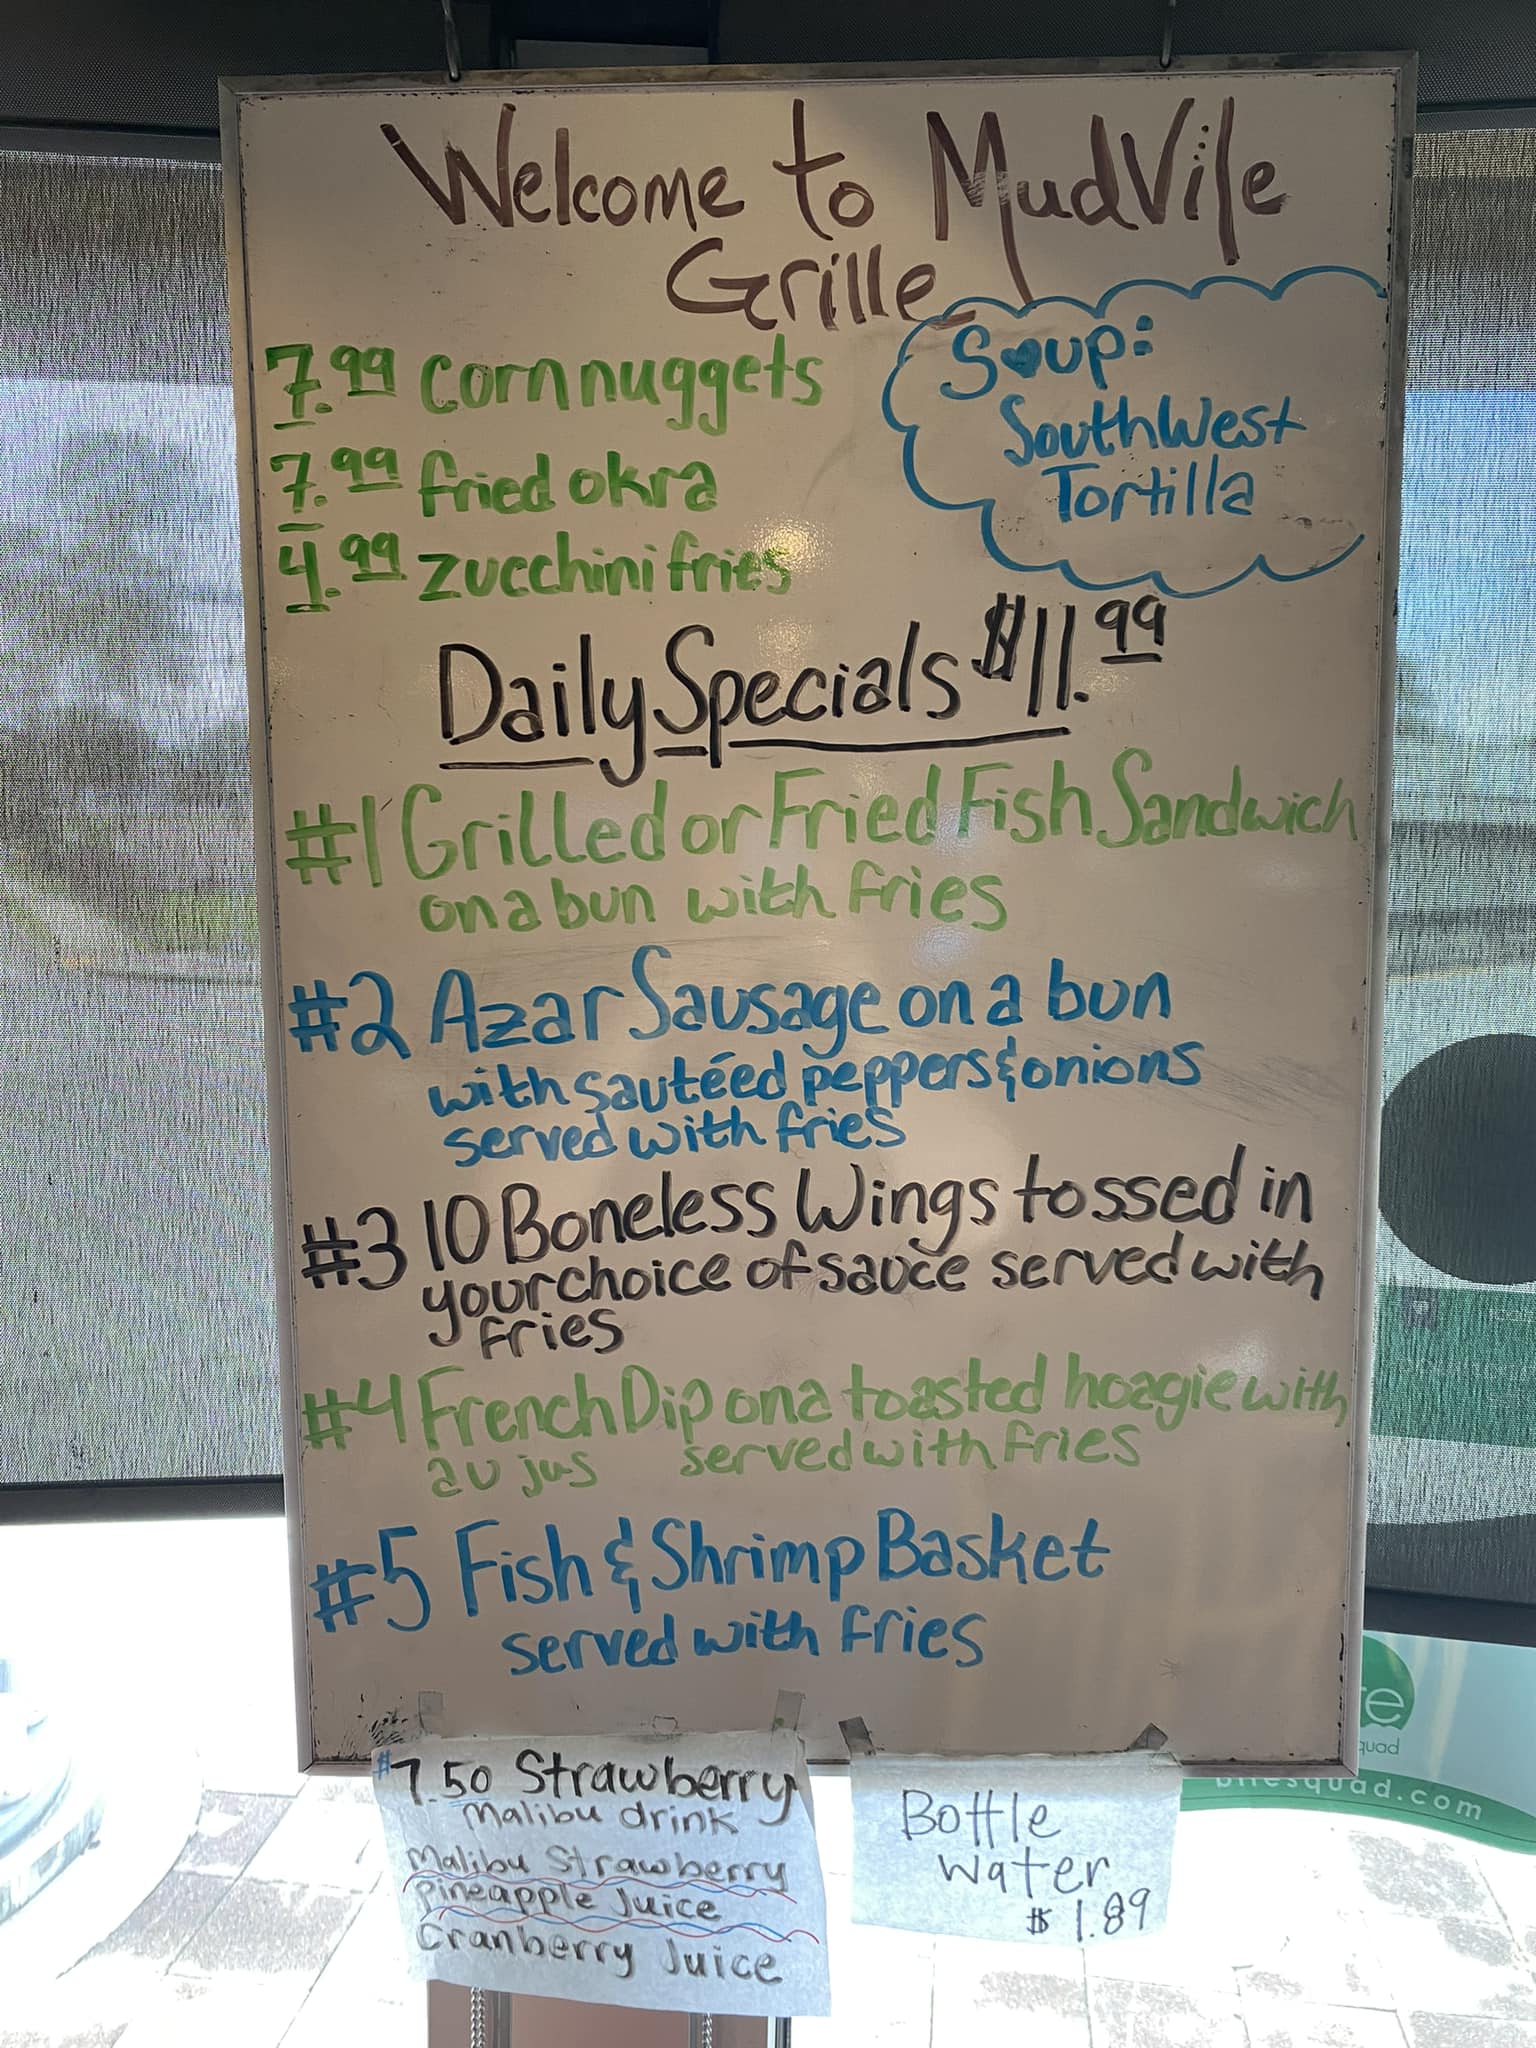 Welcome to MudVile
Grille
7.99 Corn nuggets
7.99 fried okra
4.99 zucchini fries
Soup:
SouthWest
Tortilla
Daily Specials $11.99
#1 Grilled or Fried Fish Sandwich
on a bun with fries
#2 Azar Sausage on a bun
with sautéed peppers & onions
served with fries
#3 10 Boneless Wings tossed in
your choice of sauce served with
fries
#4 French Dip on a toasted hoagie with
au jus served with fries
#5 Fish & Shrimp Basket
served with fries
$7.50 Strawberry
Malibu drink
Malibu Strawberry
Pineapple Juice
Cranberry Juice
Bottle
Water
$1.89
quad
bitesquad.com